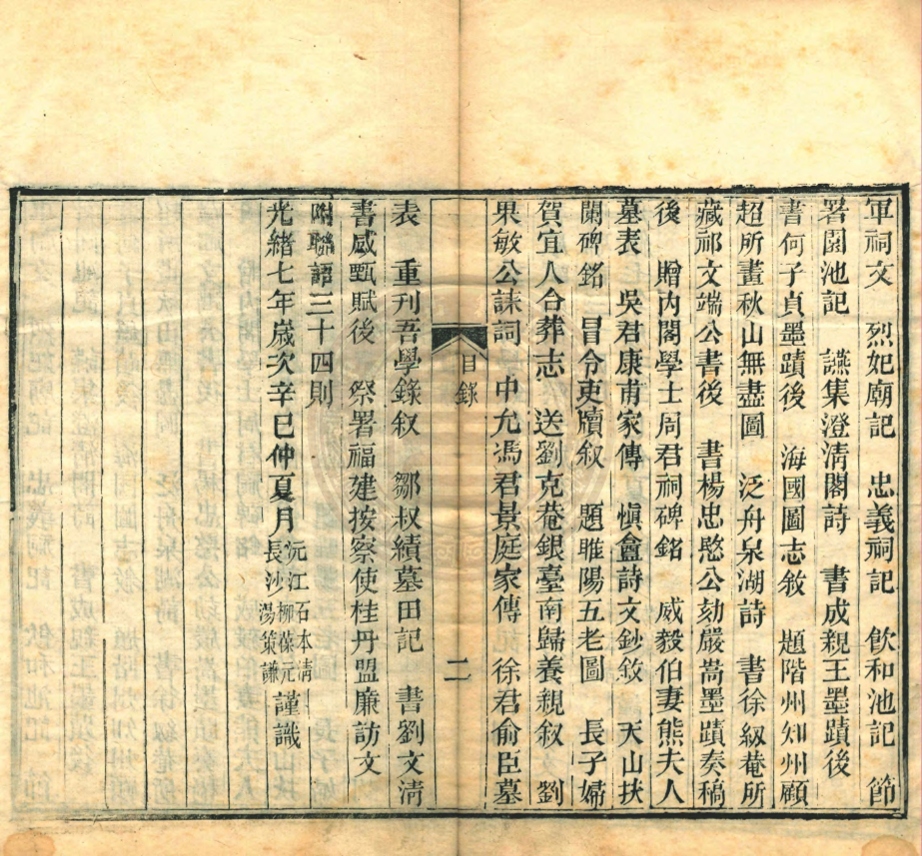 軍祠文　烈妃廟記　忠義祠記　飲和池記　節
署園池記　讌集澄清閣詩　書成親王墨蹟後
書何子貞墨蹟後　海國圖志敘　題階州知州顧
超所畫秋山無盡圖　泛舟泉湖詩　書徐紉菴所
藏祁文端公書後　書楊忠愍公劾嚴嵩墨蹟奏稿
後　贈内閣學士周君祠碑銘　威毅伯妻熊夫人
墓表　吳君康甫家傳　慎盦詩文鈔敘　天山扶
闌碑銘　冒令吏牘叙　題睢陽五老圖　長子婦
賀宜人合葬志　送劉克菴銀臺南歸養親叙　劉
果敏公誄詞　中允馮君景庭家傳　徐君俞臣墓
目錄
二
表　重刊吾學錄叙　鄒叔績墓田記　書劉文清
書感甄賦後　祭署福建按察使桂丹盟廉訪文
附聯語三十四則
光緒七年歲次辛巳仲夏月沅江石本清柳葆元長沙湯策謙謹識